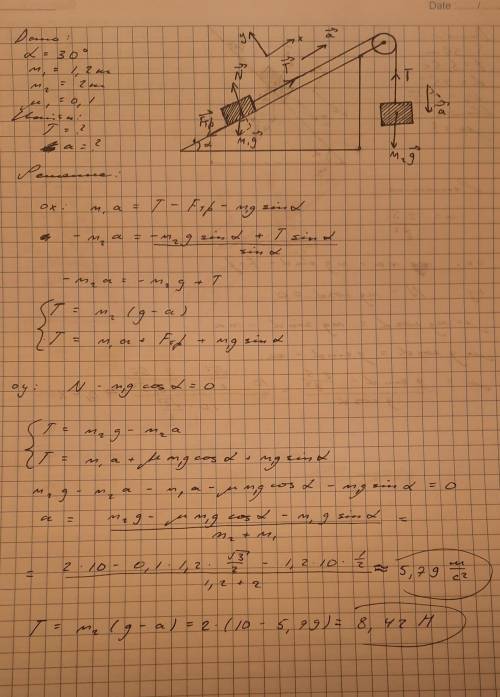 Date
Дано:
α = 30°
m₁ = 1,2 кг
m₂ = 2 кг
μ₁ = 0,1
T = ?
a = ?
Решение:
y x a⃗
N⃗ T⃗ T
F⃗тр α m₁g⃗ m₂g⃗ a⃗
ox: m₁a = T - Fтр - mg sinα
- m₂a = (-m₂g sinα + T sinα) / sinα
- m₂a = - m₂g + T
{ T = m₂(g-a)
T = m₁a + Fтр + mg sinα
oy: N - m₁g cosα = 0
{ T = m₂g - m₂a
T = m₁a + μm₁g cosα + m₁g sinα
m₂g - m₂a - m₁a - μm₁g cosα - m₁g sinα = 0
a = (m₂g - μm₁g cosα - m₁g sinα) / (m₂ + m₁) =
= (2·10 - 0,1·1,2·√3/2 - 1,2·10·1/2) / (1,2+2) ≈ 5,79 м/с²
T = m₂(g-a) = 2·(10-5,79) = 8,42 Н